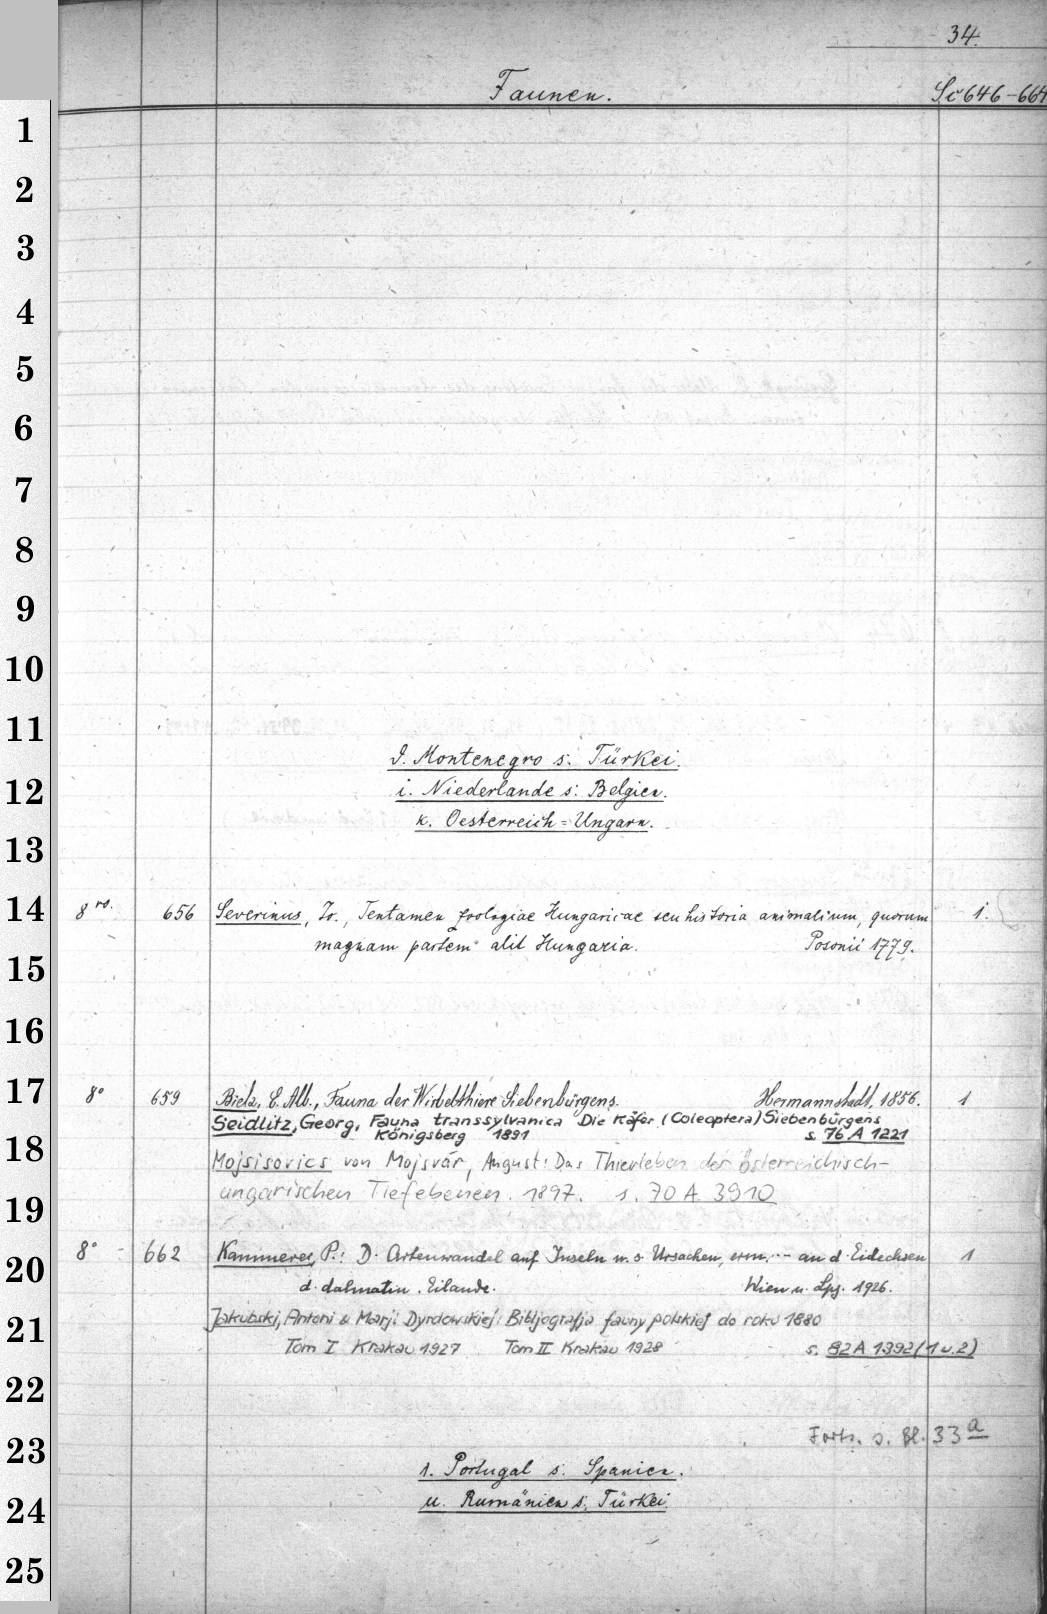 34.
Faunen. Sc 646-664
1
2
3
4
5
6
7
8
9
10
11
J. Montenegro s: Türkei.
12
i. Niederlande s: Belgien.
k. Oesterreich=Ungarn.
13
14
8 vo. 656 Severinus, Jo., Tentamen zoologiae Hungaricae seu historia animalium, quorum 1.
magnam partem alit Hungaria. Posonii 1779.
15
16
17
8° 659 Bielz, E. Alb., Fauna der Wirbelthiere Siebenbürgens. Hermannstadt, 1856. 1
Seidlitz, Georg, Fauna transsylvanica Die Käfer (Coleoptera) Siebenbürgens
Königsberg 1891 s. 76 A 1221
18
Mojsisovics von Mojsvár, August: Das Thierleben der österreichisch-
ungarischen Tiefebenen. 1897. s. 70 A 3910
19
20
8° - 662 Kammerer, P.: D. Artenwandel auf Inseln u. s. Ursachen, erm. .- an d. Eidechsen 1
d. dalmatin. Eilande. Wien u. Lpz. 1926.
21
Jakubski, Antoni & Marji Dyrdowskiej: Bibljografja fauny polskiej do roku 1880
Tom I Krakau 1927 Tom II Krakau 1928 s. 82 A 1392 (1 u. 2)
22
23
Forts. s. Bl. 33 a
1. Portugal s. Spanien.
24
u. Rumänien s. Türkei
25